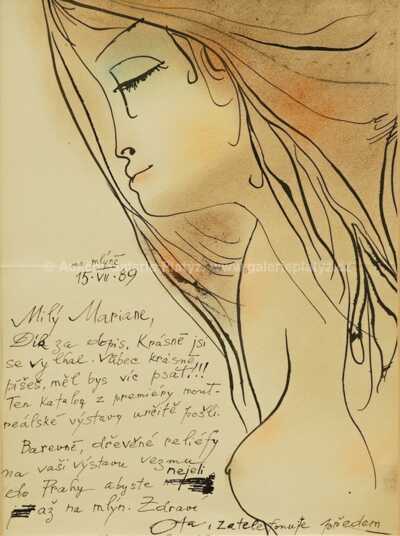 na mlýně
15. VII. 89
Milý Mariane,
Dík za dopis. Krásně jsi
se vylhal. Vůbec krásně
píšeš, měl bys víc psát!!!
Ten katalog z premiéry mont-
reálské výstavy určitě pošli.
Barevné, dřevěné reliéfy
na vaši výstavu vezmu
do Prahy abyste nejeli
až na mlýn. Zdraví
Ota, zatelefonuje předem
www.galerieplatyz.cz